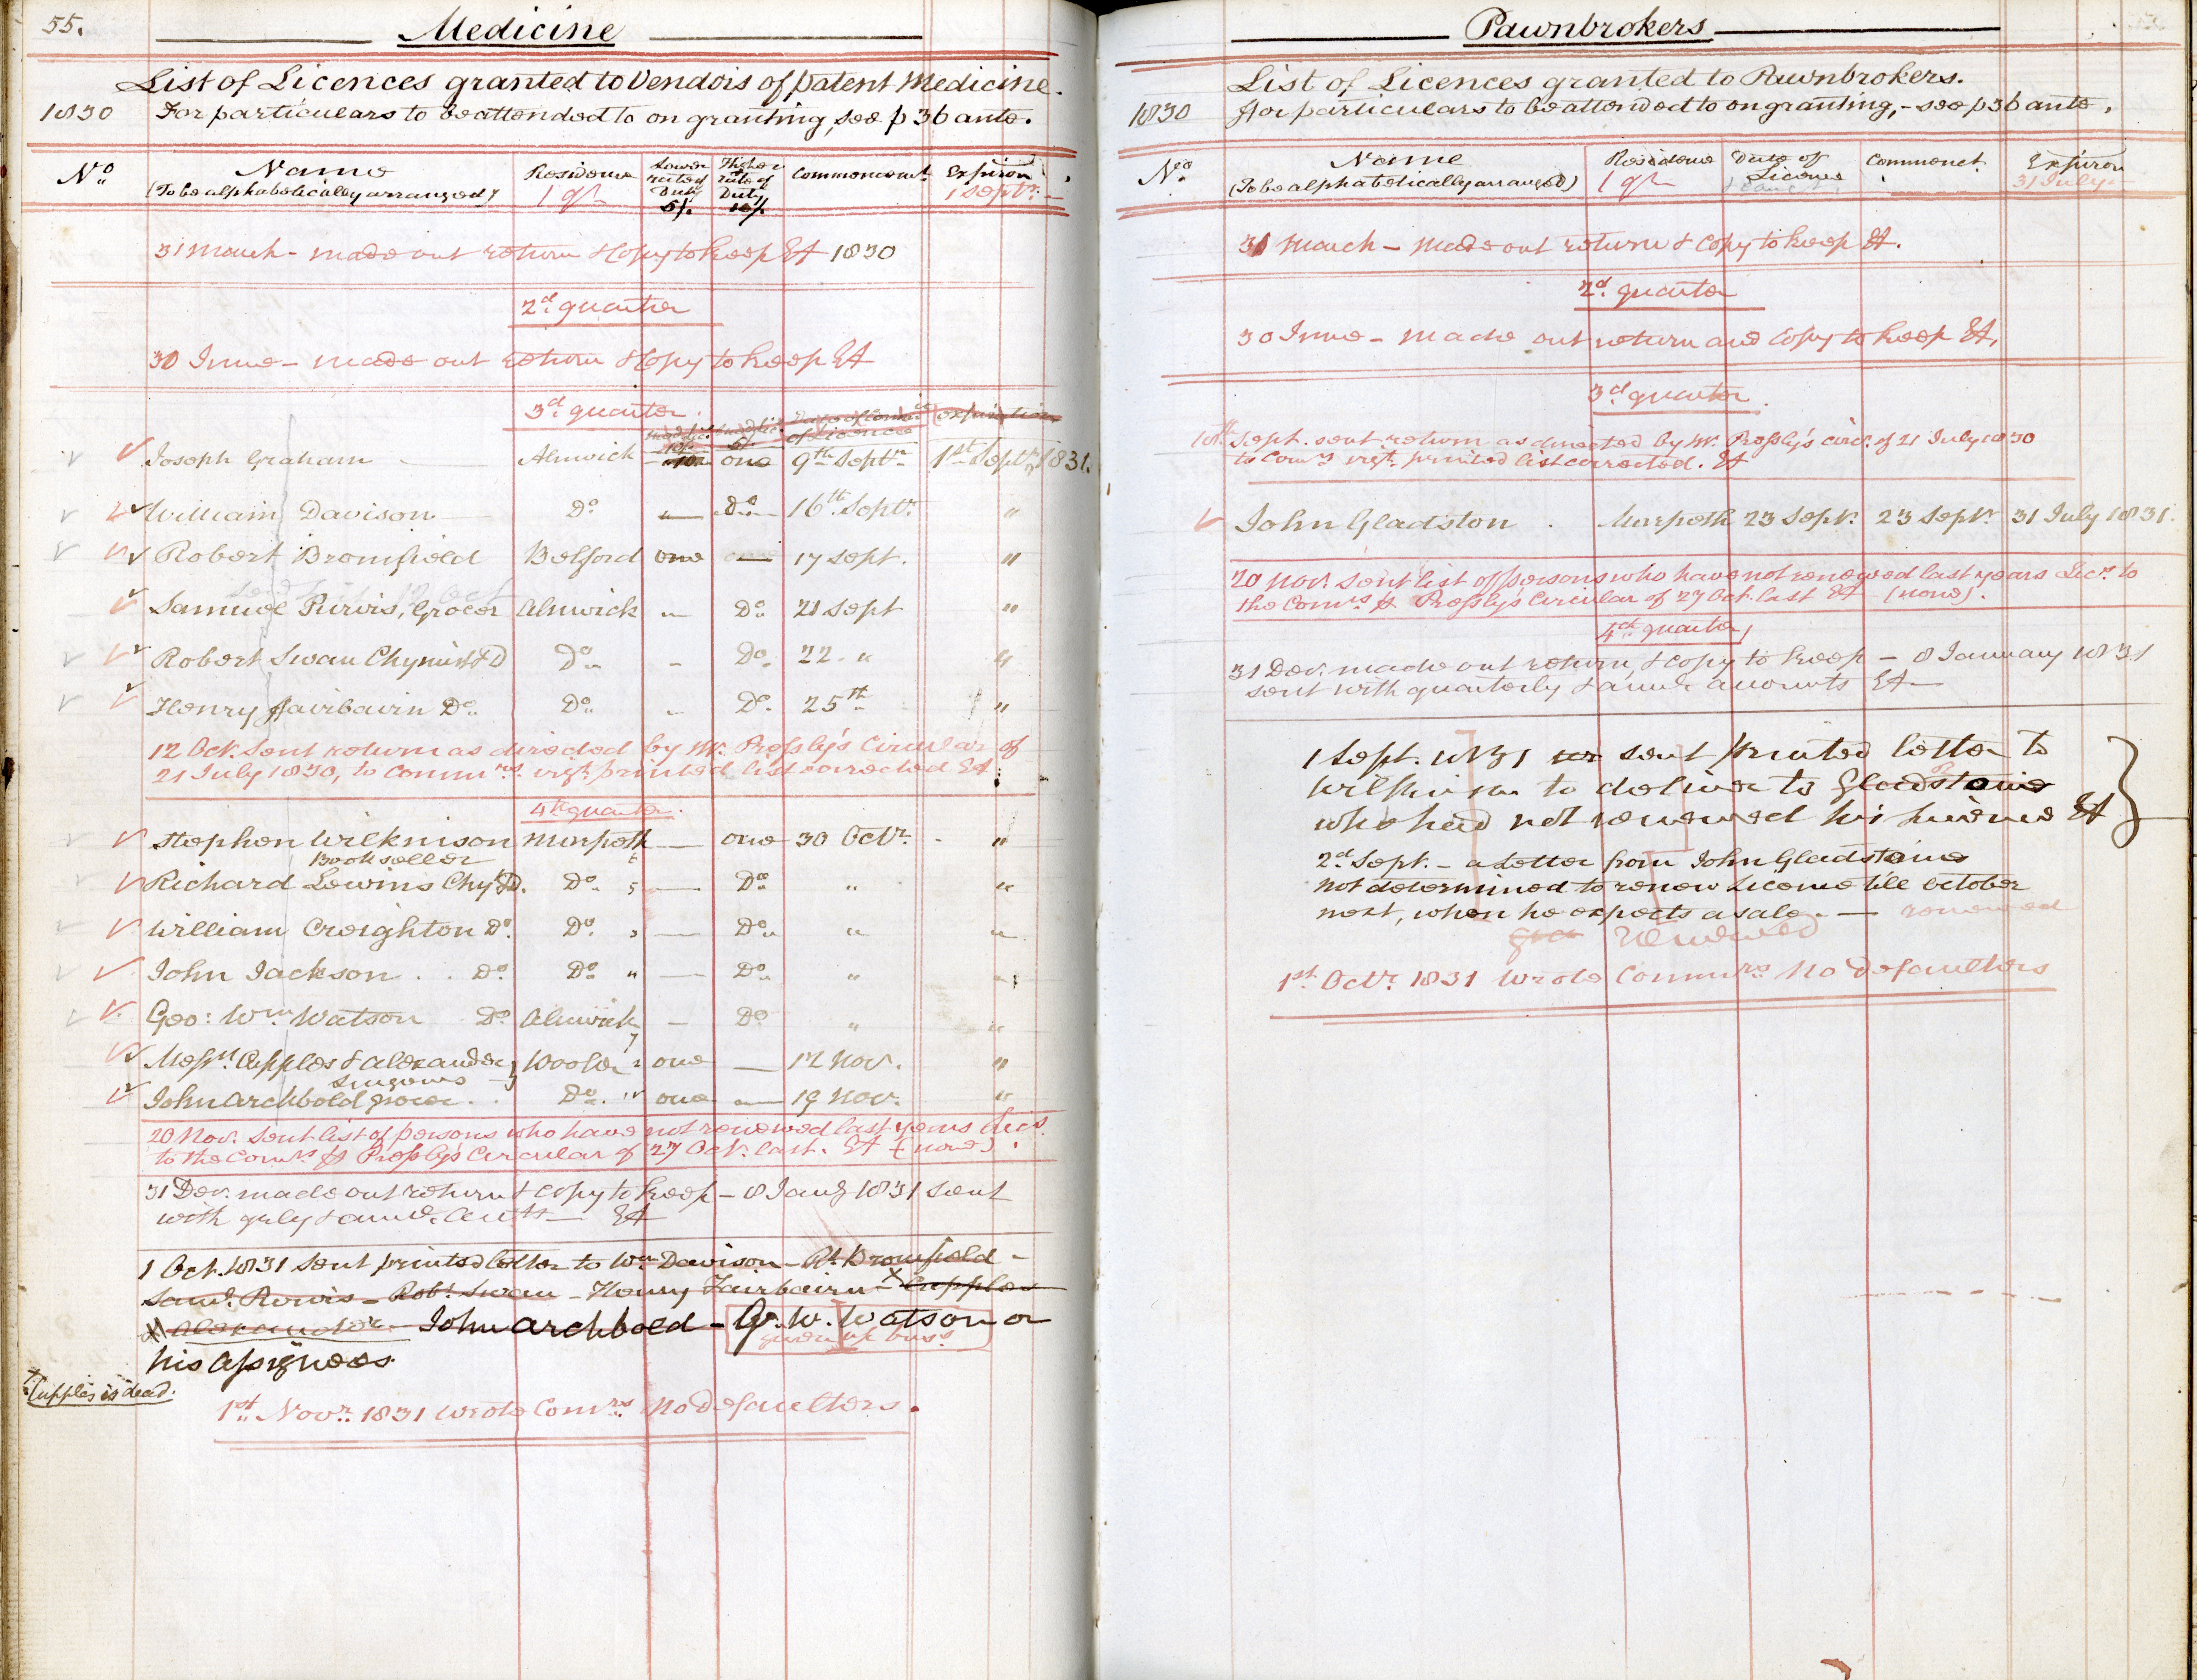 55.
Medicine
List of Licences granted to Vendors of patent Medicine.
1830 For particulars to be attended to on granting, see p 36 ante.
No. Name Residence Lower rate of Duty 5/. Higher rate of Duty 10/. Commencemt. Expiron
(To be alphabetically arranged) 1 qr 1 Septr.
31 March - made out return & Copy to keep EA 1830
2d quarter
30 June - made out return & Copy to keep EA
3d quarter.
Joseph Graham Alnwick one 9th Septr 1st Septr 1831.
William Davison Do Do 16th Septr. "
Robert Bromfield Belford one 17 Sept. "
Samuel Purvis, Grocer Alnwick Do 21 Sept "
Robert Swan Chymist & D Do - Do 22 " "
Henry Fairbairn Do Do Do 25th "
12 Oct. Sent return as directed by Mr. Pressly's Circular of
21 July 1830, to Commrs. vizt. printed list corrected EA
4th quarter.
Stephen Wilkinson Morpeth one 30 Octr. "
Bookseller
Richard Lewins Chyt & D. Do Do " "
William Creighton Do. Do. Do " "
John Jackson . . Do Do " Do " "
Geo: Wm Watson Do Alnwick Do " "
Messrs. Cupples & Alexander Wooler one 12 Nov. "
Surgeons
John Archbold Grocer . . Do one 19 Nov. "
20 Nov. sent list of persons who have not renewed last years Lics.
to the Comrs. p Pressly's Circular of 27 Oct. last. EA (none).
31 Dec. made out return & copy to keep - 8 Jany 1831 sent
with qrly & annl. Accts EA
1 Oct. 1831 sent printed letter to Wm Davison - Rt. Bromfield -
Saml. Purvis - Robt. Swan - Henry Fairbairn - X Cupples
& Alexander - John Archbold - G. W. Watson or
given up buss.
his Assignees.
X Cupples is dead.
1st Novr. 1831 wrote Comrs. No Defaulters.
Pawnbrokers
List of Licences granted to Pawnbrokers.
1830 For particulars to be attended to on granting, - see p 36 ante,
No. Name Residence Date of Licence Commencet. Expiron
(To be alphabetically arranged) 1 qr 31 July
31 March - made out return & Copy to keep EA.
2d. quarter
30 June - made out return and Copy to keep EA,
3d quarter.
Sept. sent return as directed by Mr. Pressly's circr. of 21 July 1830
to Comrs vizt. printed list corrected. EA
John Gladston . Morpeth 23 Sept. 23 Sept. 31 July 1831.
20 Nov. sent list of persons who have not renewed last years Lics. to
the Comrs p Pressly's Circular of 27 Oct. last EA (none).
4th quarter
31 Dec. made out return & copy to keep - 8 January 1831
sent with quarterly & annl. accounts EA
1 Sept. 1831 sent printed letter to
Wilkinson to deliver to Gladstone
who had not renewed his Licence EA
2d Sept. - a letter from John Gladstone
not determined to renew Licence till October
next, when he expects a sale. — renewed
Renewed
1st Octr. 1831 wrote Commrs No Defaulters